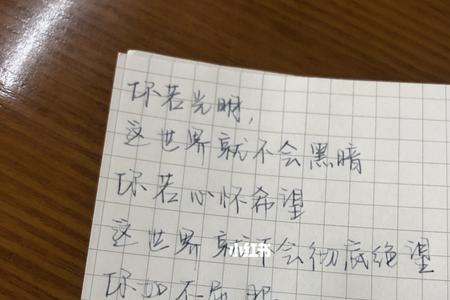 你若光明，
这世界就不会黑暗
你若心怀希望
这世界就不会彻底绝望
你如不屈服
小红书